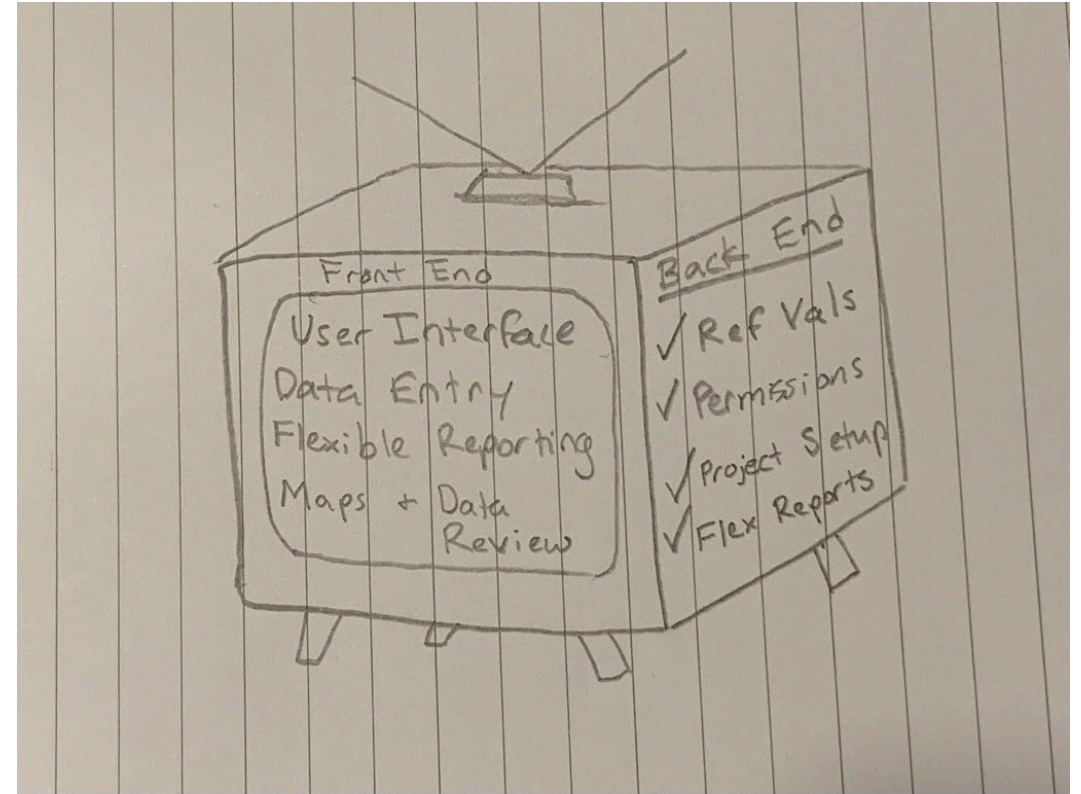 Front End
User Interface
Data Entry
Flexible Reporting
Maps + Data
Review
Back End
✓ Ref Vals
✓ Permissions
✓ Project Setup
✓ Flex Reports